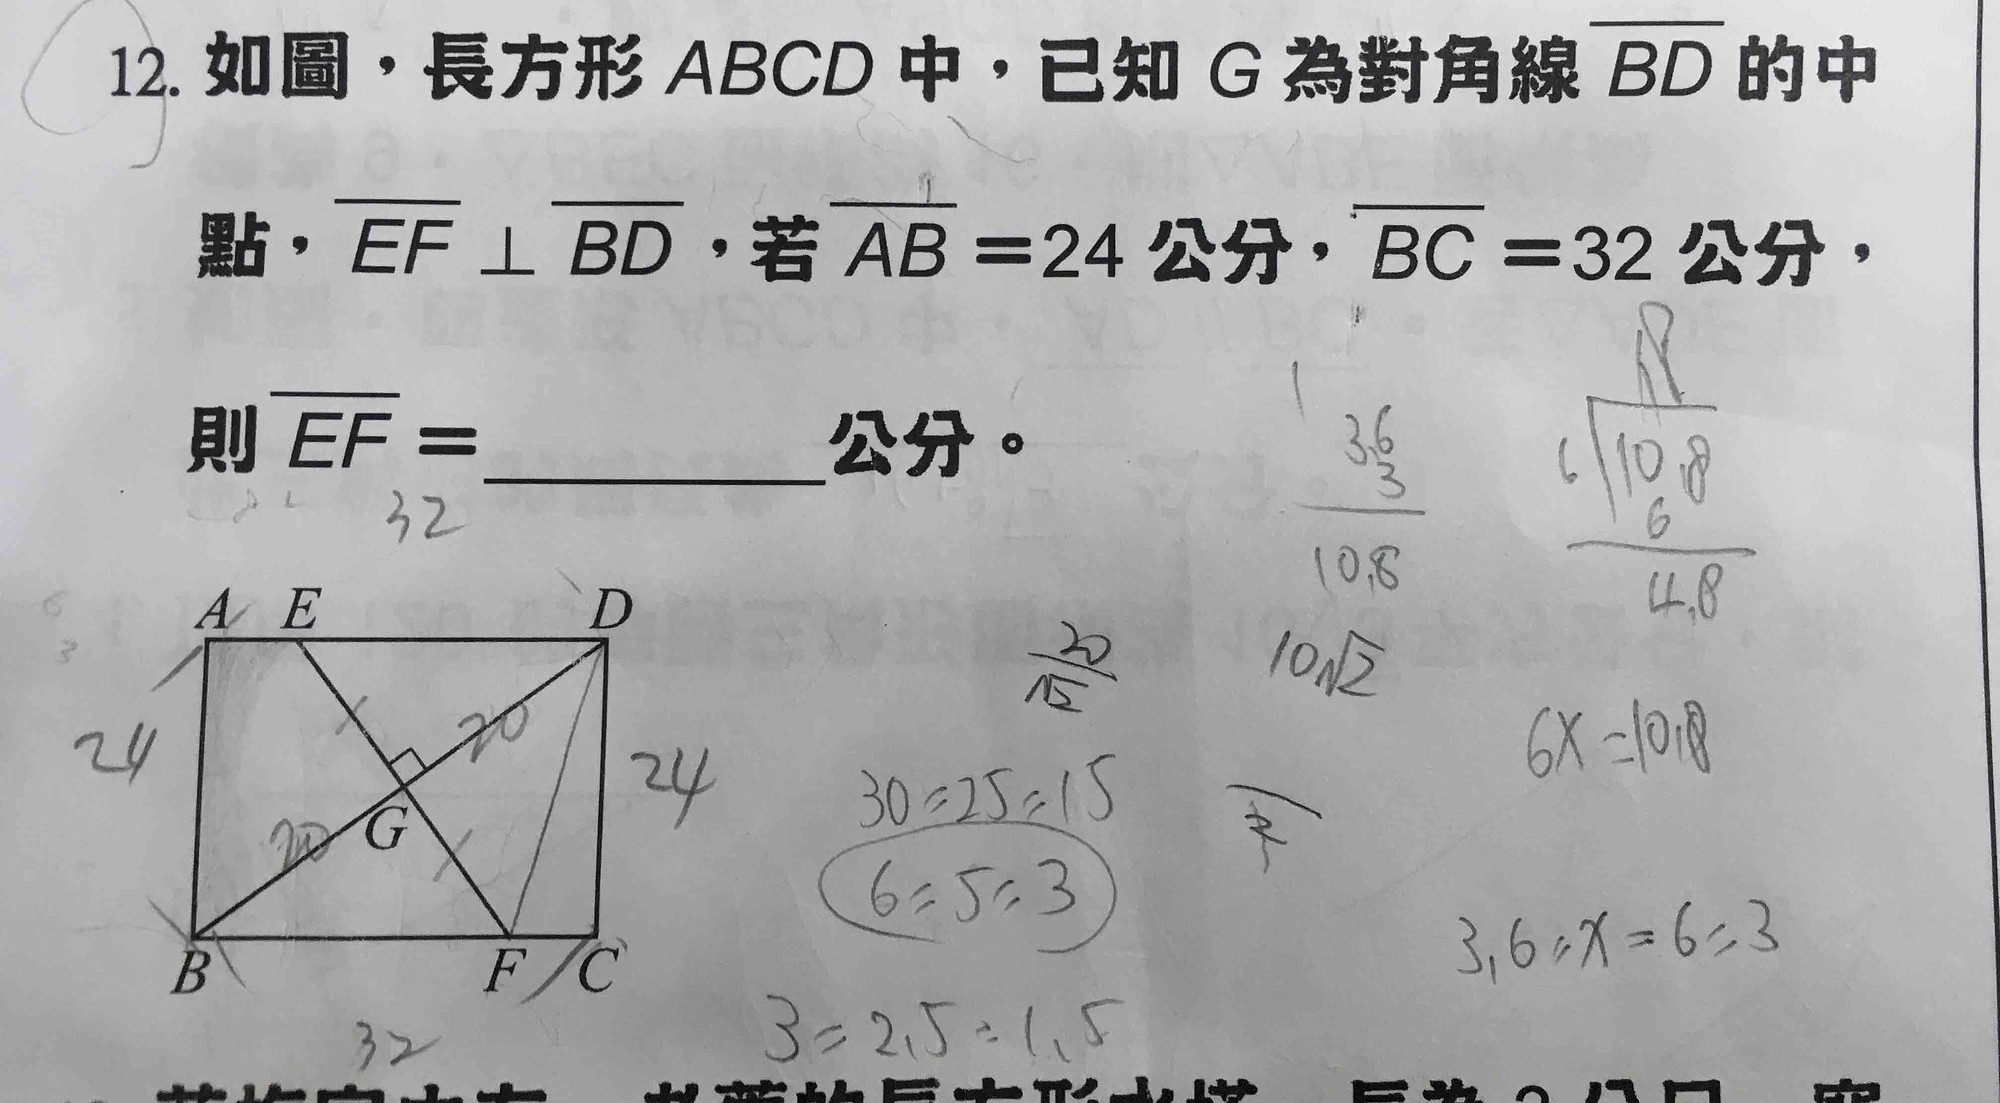 12. 如圖，長方形 ABCD 中，已知 G 為對角線 BD 的中
點，EF ⊥ BD，若 AB =24 公分，BC =32 公分，
則 EF =______公分。
32
A E D
24
20
24
G
20
B F C
32
20
√2
30:25:15
6:5:3
3:2.5:1.5
3.6
3
10.8
10√2
6
10.8
6
4.8
6x=10.8
3.6:x=6:3